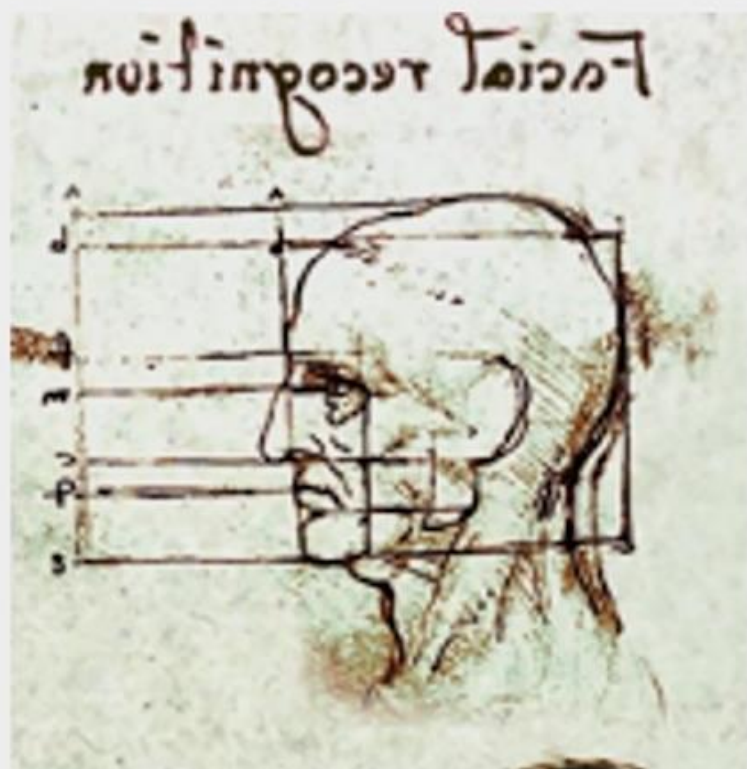 Facial recognition
d
m
p
s